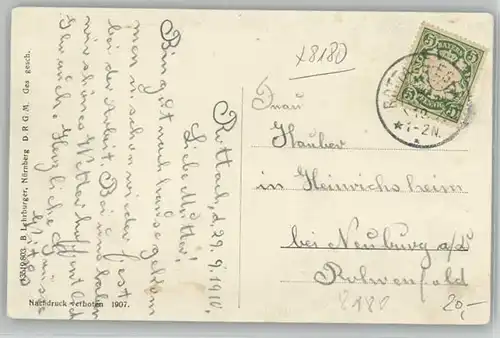 Rottach, d. 29. 9. 1910.
Liebe Mutter!
Bin gut nach hause gekom
men u. schon wieder fest
bei der Arbeit. Bei uns haben
wir schönes Wetter hoffentlich
Ihr auch. Herzliche Grüsse
x8180
Frau
Hauber
in Heinrichsheim
bei Neuburg a/D
Rohrenfeld
8180
20,-
BAYERN
5 5
PFENNIG
1-2N.
B. Lehrburger, Nürnberg D. R. G. M. Ges. gesch.
Nachdruck verboten 1907.